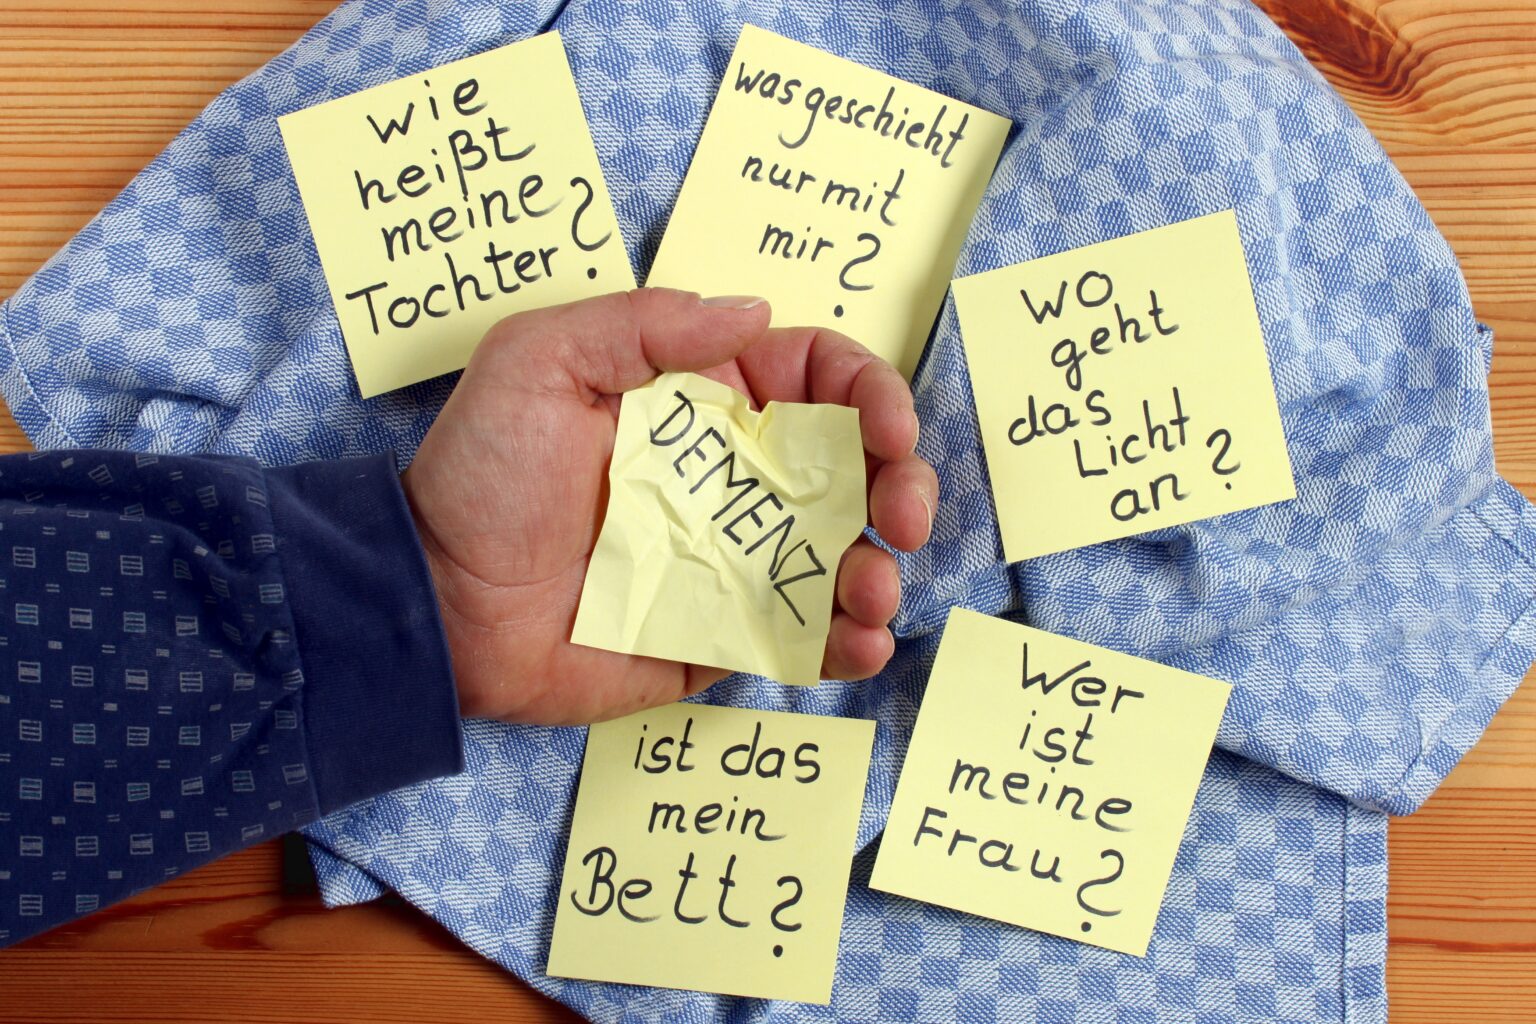 wie
heißt
meine
Tochter?
was geschieht
nur mit
mir?
wo
geht
das
Licht
an?
DEMENZ
ist das
mein
Bett?
Wer
ist
meine
Frau?